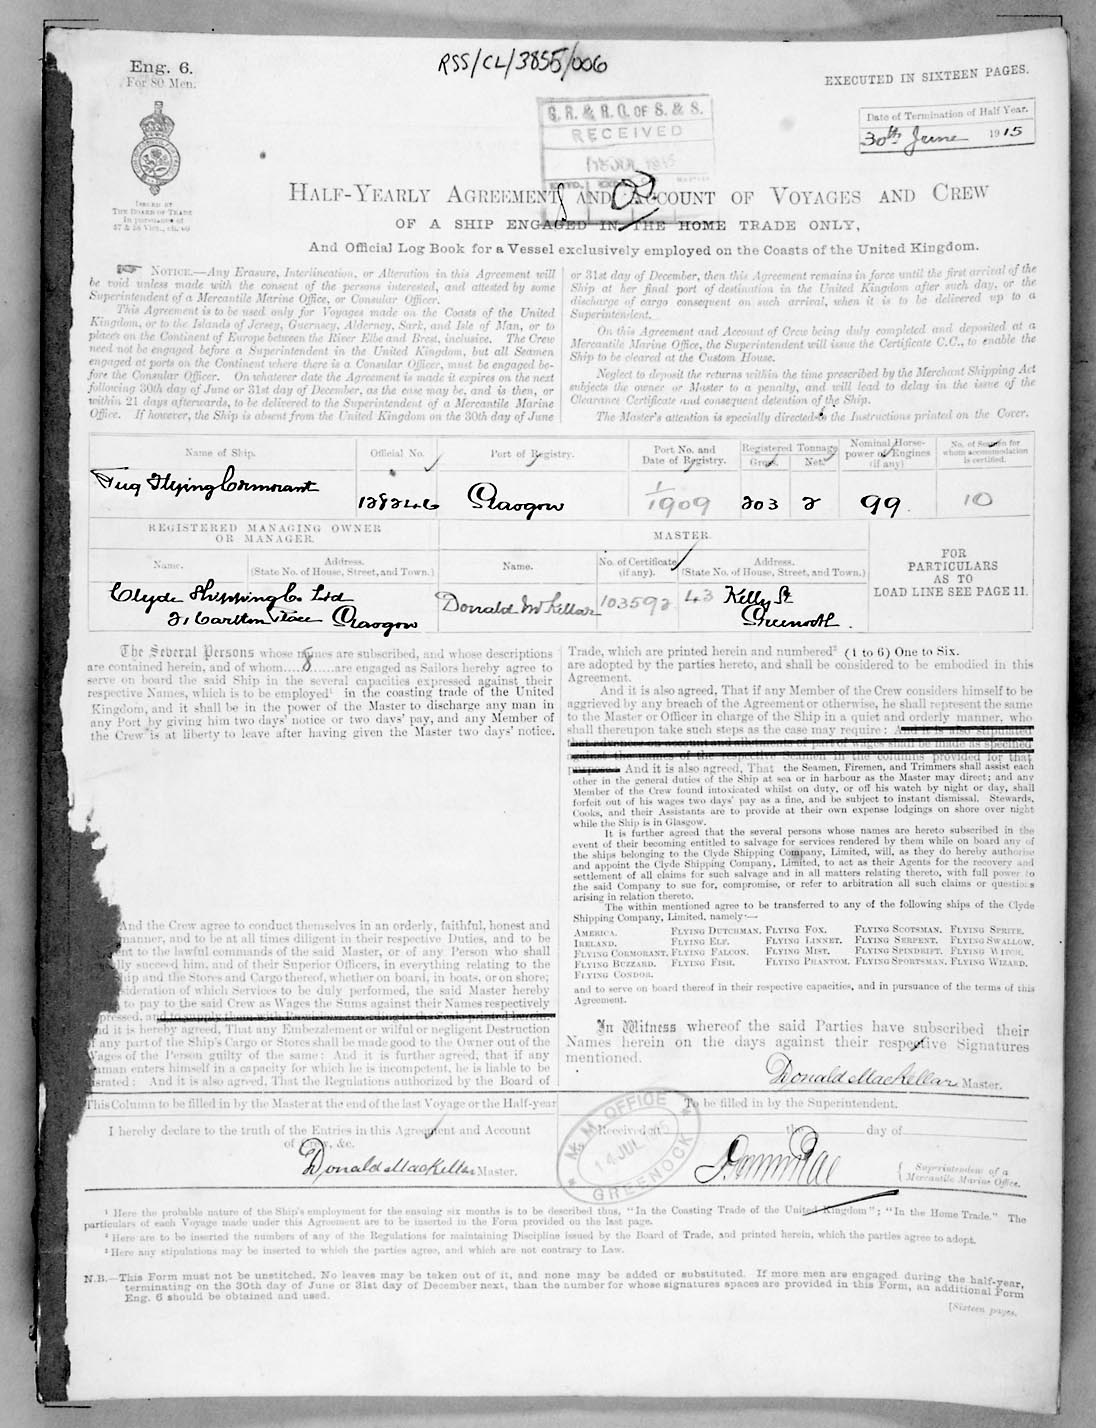 RSS/CL/3855/006
Eng. 6.
For 80 Men.
EXECUTED IN SIXTEEN PAGES.
G. R. & R. O. OF S. & S.
RECEIVED
Date of Termination of Half Year.
30th June 1915
ISSUED BY
THE BOARD OF TRADE
In pursuance of
57 & 58 Vict., ch. 60
HALF-YEARLY AGREEMENT AND ACCOUNT OF VOYAGES AND CREW
OF A SHIP ENGAGED IN THE HOME TRADE ONLY,
And Official Log Book for a Vessel exclusively employed on the Coasts of the United Kingdom.
NOTICE.—Any Erasure, Interlineation, or Alteration in this Agreement will
be void unless made with the consent of the persons interested, and attested by some
Superintendent of a Mercantile Marine Office, or Consular Officer.
This Agreement is to be used only for Voyages made on the Coasts of the United
Kingdom, or to the Islands of Jersey, Guernsey, Alderney, Sark, and Isle of Man, or to
places on the Continent of Europe between the River Elbe and Brest, inclusive. The Crew
need not be engaged before a Superintendent in the United Kingdom, but all Seamen
engaged at ports on the Continent where there is a Consular Officer, must be engaged be-
fore the Consular Officer. On whatever date the Agreement is made it expires on the next
following 30th day of June or 31st day of December, as the case may be, and is then, or
within 21 days afterwards, to be delivered to the Superintendent of a Mercantile Marine
Office. If however, the Ship is absent from the United Kingdom on the 30th day of June
or 31st day of December, then this Agreement remains in force until the first arrival of the
Ship at her final port of destination in the United Kingdom after such day, or the
discharge of cargo consequent on such arrival, when it is to be delivered up to a
Superintendent.
On this Agreement and Account of Crew being duly completed and deposited at a
Mercantile Marine Office, the Superintendent will issue the Certificate C.C., to enable the
Ship to be cleared at the Custom House.
Neglect to deposit the returns within the time prescribed by the Merchant Shipping Act
subjects the owner or Master to a penalty, and will lead to delay in the issue of the
Clearance Certificate and consequent detention of the Ship.
The Master's attention is specially directed to the Instructions printed on the Cover.
Name of Ship. Official No. Port of Registry. Port No. and Date of Registry. Registered Tonnage Gross. Net. Nominal Horse-power of Engines (if any) No. of Seamen for whom accommodation is certified.
Tug Flying Cormorant 128246 Glasgow 1/1909 203 2 99 10
REGISTERED MANAGING OWNER
OR MANAGER.
MASTER.
Name. Address. (State No. of House, Street, and Town.) Name. No. of Certificate (if any). Address. (State No. of House, Street, and Town.)
FOR
PARTICULARS
AS TO
LOAD LINE SEE PAGE 11.
Clyde Shipping Co Ltd Donald McKellar 103592 43 Kelly St
21 Carlton Place Glasgow Greenock.
The Several Persons whose names are subscribed, and whose descriptions
are contained herein, and of whom 8 are engaged as Sailors hereby agree to
serve on board the said Ship in the several capacities expressed against their
respective Names, which is to be employed¹ in the coasting trade of the United
Kingdom, and it shall be in the power of the Master to discharge any man in
any Port by giving him two days' notice or two days' pay, and any Member of
the Crew is at liberty to leave after having given the Master two days' notice.
And the Crew agree to conduct themselves in an orderly, faithful, honest and
manner, and to be at all times diligent in their respective Duties, and to be
to the lawful commands of the said Master, or of any Person who shall
succeed him, and of their Superior Officers, in everything relating to the
and the Stores and Cargo thereof, whether on board, in boats, or on shore;
ideration of which Services to be duly performed, the said Master hereby
to pay to the said Crew as Wages the Sums against their Names respectively
pressed, and to supply them with Provisions according to the Scale printed herein.
nd it is hereby agreed, That any Embezzlement or wilful or negligent Destruction
f any part of the Ship's Cargo or Stores shall be made good to the Owner out of the
Wages of the Person guilty of the same: And it is further agreed, that if any
man enters himself in a capacity for which he is incompetent, he is liable to be
israted: And it is also agreed, That the Regulations authorized by the Board of
Trade, which are printed herein and numbered² (1 to 6) One to Six.
are adopted by the parties hereto, and shall be considered to be embodied in this
Agreement.
And it is also agreed, That if any Member of the Crew considers himself to be
aggrieved by any breach of the Agreement or otherwise, he shall represent the same
to the Master or Officer in charge of the Ship in a quiet and orderly manner, who
shall thereupon take such steps as the case may require: And it is also stipulated
that advances on account and allotments of part of wages shall be made as specified
against the names of the respective Seamen in the columns provided for that
purpose. And it is also agreed, That the Seamen, Firemen, and Trimmers shall assist each
other in the general duties of the Ship at sea or in harbour as the Master may direct; and any
Member of the Crew found intoxicated whilst on duty, or off his watch by night or day, shall
forfeit out of his wages two days' pay as a fine, and be subject to instant dismissal. Stewards,
Cooks, and their Assistants are to provide at their own expense lodgings on shore over night
while the Ship is in Glasgow.
It is further agreed that the several persons whose names are hereto subscribed in the
event of their becoming entitled to salvage for services rendered by them while on board any of
the ships belonging to the Clyde Shipping Company, Limited, will, as they do hereby authorise
and appoint the Clyde Shipping Company, Limited, to act as their Agents for the recovery and
settlement of all claims for such salvage and in all matters relating thereto, with full power to
the said Company to sue for, compromise, or refer to arbitration all such claims or questions
arising in relation thereto.
The within mentioned agree to be transferred to any of the following ships of the Clyde
Shipping Company, Limited, namely:—
AMERICA. FLYING DUTCHMAN. FLYING FOX. FLYING SCOTSMAN. FLYING SPRITE.
IRELAND. FLYING ELF. FLYING LINNET. FLYING SERPENT. FLYING SWALLOW.
FLYING CORMORANT. FLYING FALCON. FLYING MIST. FLYING SPINDRIFT. FLYING WITCH.
FLYING BUZZARD. FLYING FISH. FLYING PHANTOM. FLYING SPORTSMAN. FLYING WIZARD.
FLYING CONDOR.
and to serve on board thereof in their respective capacities, and in pursuance of the terms of this
Agreement.
In Witness whereof the said Parties have subscribed their
Names herein on the days against their respective Signatures
mentioned.
Donald MacKellar Master.
This Column to be filled in by the Master at the end of the last Voyage or the Half-year
I hereby declare to the truth of the Entries in this Agreement and Account
of Crew, &c.
Donald MacKellar Master.
To be filled in by the Superintendent.
Received at the day of
M. M. OFFICE
14 JUL 1915
GREENOCK
Superintendent of a
Mercantile Marine Office.
¹ Here the probable nature of the Ship's employment for the ensuing six months is to be described thus, "In the Coasting Trade of the United Kingdom"; "In the Home Trade." The
particulars of each Voyage made under this Agreement are to be inserted in the Form provided on the last page.
² Here are to be inserted the numbers of any of the Regulations for maintaining Discipline issued by the Board of Trade, and printed herein, which the parties agree to adopt.
³ Here any stipulations may be inserted to which the parties agree, and which are not contrary to Law.
N.B.—This Form must not be unstitched. No leaves may be taken out of it, and none may be added or substituted. If more men are engaged during the half-year,
terminating on the 30th day of June or 31st day of December next, than the number for whose signatures spaces are provided in this Form, an additional Form
Eng. 6 should be obtained and used.
[Sixteen pages.